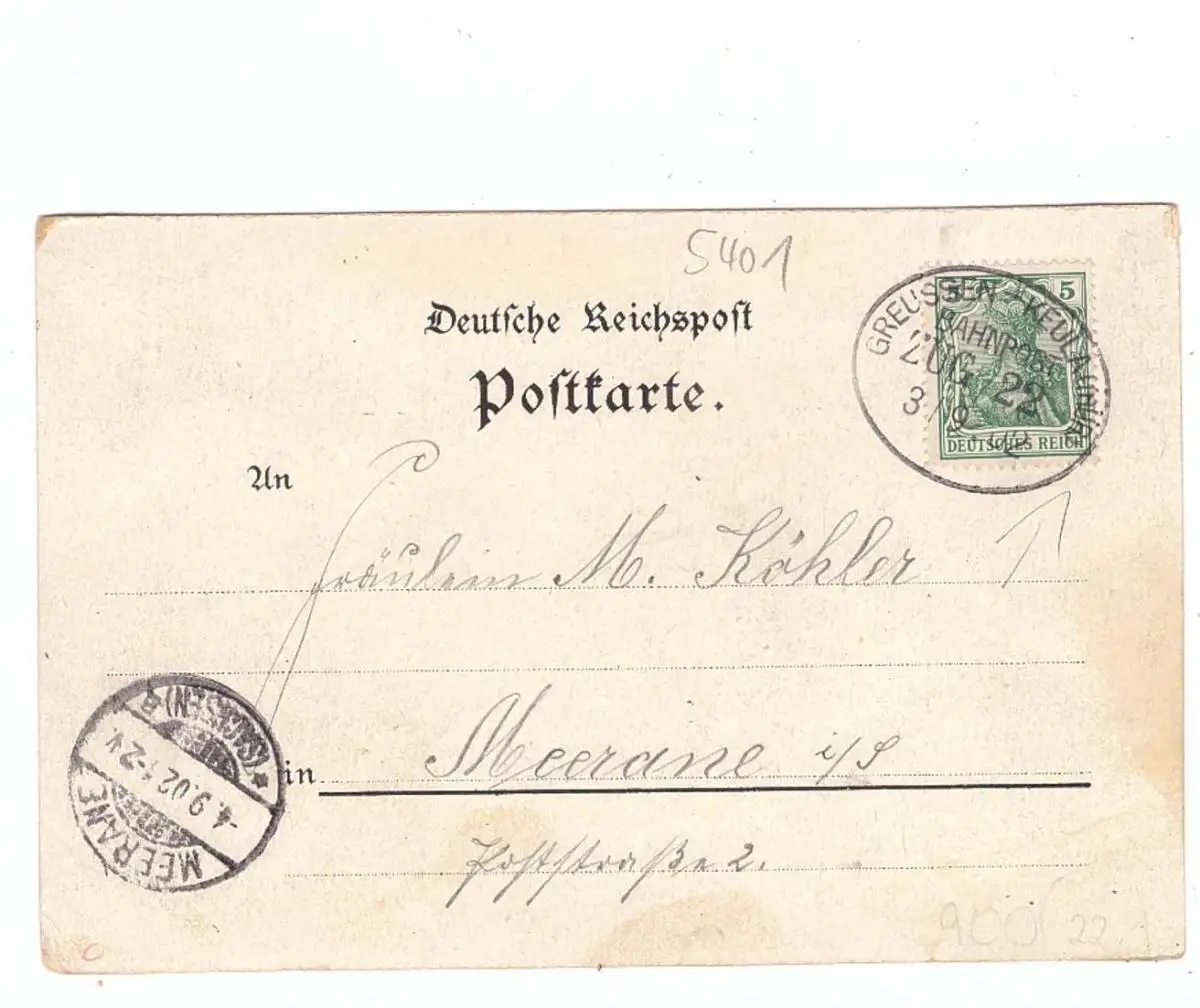 5401
Deutsche Reichspost
Postkarte.
5
GREUSSEN - KEULA
BAHNPOST
ZUG 22
3/9. 02
DEUTSCHES REICH
An
Fräulein M. Köhler
in Meerane i/S
Poststraße 2.
MEERANE
-4.9.02.1-2V
(SACHSEN) *
900 22